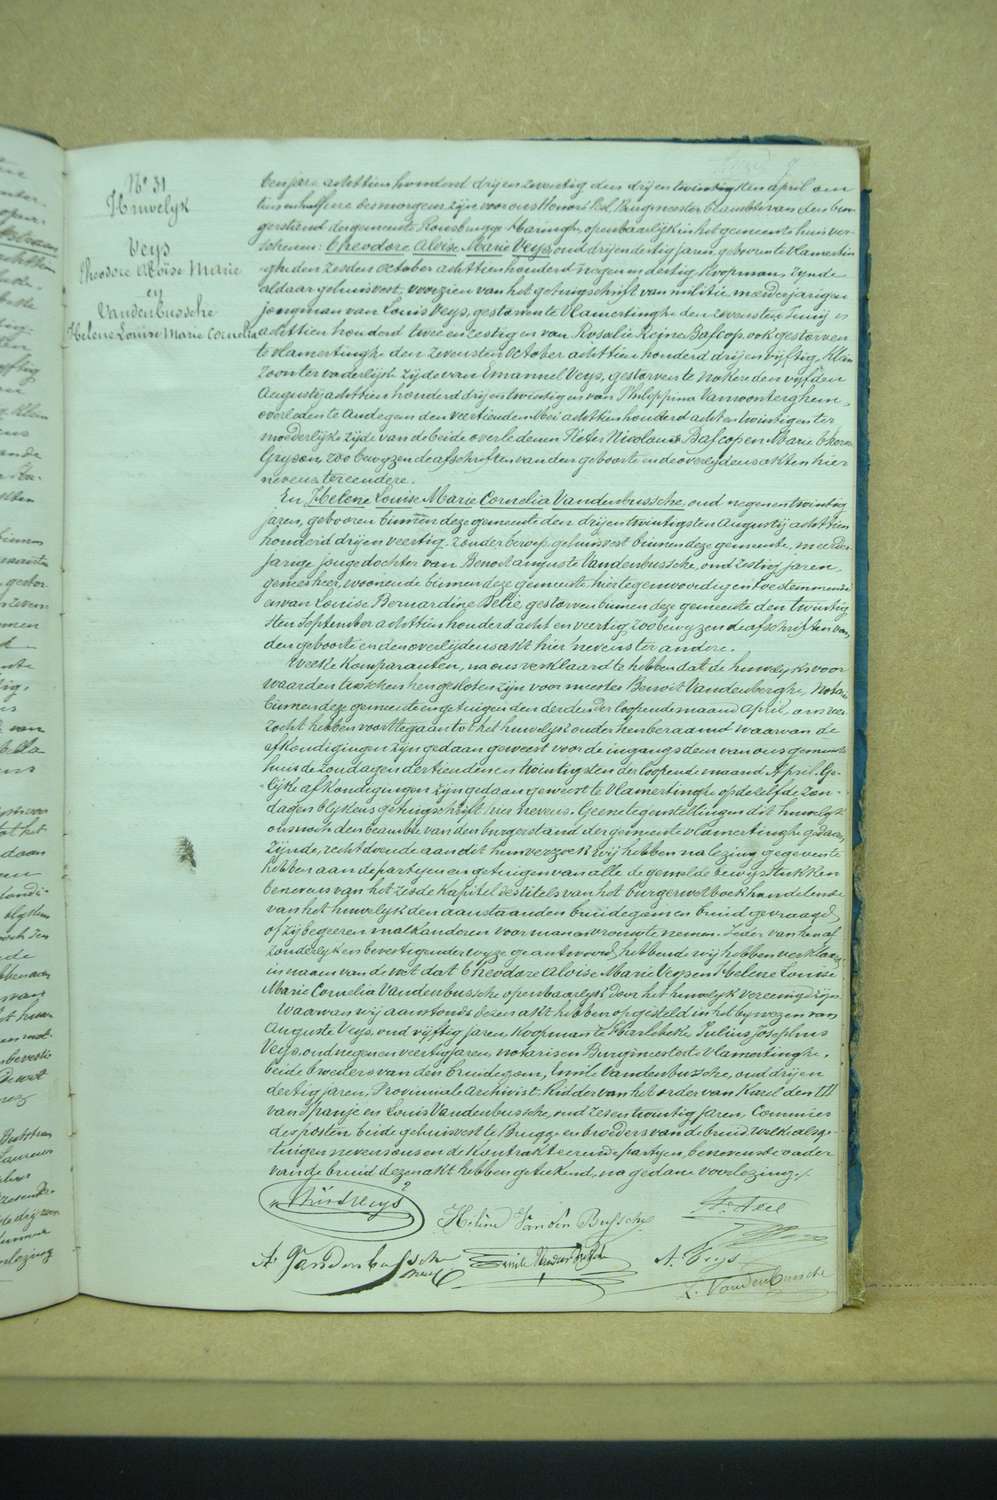 N° 31
Huwelyk
Veys
Theodore Aloïse Marie
en
Vandenbussche
Helene Louise Marie Cornelia
ten jare achttien honderd drij en zeventig den drij en twintigsten april om
tien en half ure des morgens zijn voor ons Burgmeester Beambte van den bur-
gerstand der gemeente Rousbrugge Haringhe openbaarlijk in het gemeentehuis ver-
schenen: Theodore Aloïse Marie Veys, oud drij en dertig jaren, geboren te Vlamertin-
ghe den zesden October achttien honderd negen en dertig, Koopman, zijnde
aldaar gehuisvest, voorzien van het getuigschrift van militie, meerderjarigen
jongman van Louis Veys, gestorven te Vlamertinghe den zevensten Junij
achttien honderd twee en zestig en van Rosalie Reine Bafcop, ook gestorven
te Vlamertinghe den zevensten October achttien honderd drij en vijftig, Klein
zoon ter vaderlijke zijde van Emannel Veys, gestorven te Nokere den vijfden
Augustij achttien honderd drij en twintig en van Philippina Vanwonterghem,
overleden te Audegem den veertienden Mei achttien honderd acht en twintig en ter
moederlijke zijde van de beide overledenen Pieter Nicolaus Bafcop en Marie
Gryson, zoo bewijzen de afschriften van den geboorte en de overlijdens akten hier
nevens ter eendere.
En Helene Louise Marie Cornelia Vandenbussche, oud negen en twintig
jaren, geboren binnen deze gemeente den drij en twintigsten Augustij achttien
honderd drij en veertig, zonder beroep, gehuisvest binnen deze gemeente, meerder
jarige jonge dochter van Benoit Auguste Vandenbussche, oud zestig jaren,
geneesheer, woonende binnen deze gemeente hier tegenwoordig en toestemmende
en van Louise Bernardine Belie gestorven binnen deze gemeente den twintig
sten September achttien honderd acht en veertig, zoo bewijzen de afschriften van
den geboorte en den overlijdens akt hier nevens ter andere.
Welke Komparanten, na ons verklaard te hebben dat de huwelijksvoor
waarden tusschen hen gesloten zijn voor meester Benoit Vandenberghe, Notaris
binnen deze gemeente en getuigen den derden der loopende maand April, ons ver
zocht hebben voort te gaan tot het huwelijk onder hen beraamd waarvan de
afkondigingen zijn gedaan geweest voor de ingangsdeur van ons gemeente
huis de zondagen dertienden en twintigsten der loopende maand April. Ge-
lijke afkondigingen zijn gedaan geweest te Vlamertinghe op de zelfde zon-
dagen blijkens getuigschrift hier nevens. Geene tegenstellingen dit huwelijk
ons noch den beambte van den burgerstand der gemeente Vlamertinghe gedaan
zijnde, recht doende aan dit hun verzoek wij hebben na lezing gegeven te
hebben aan de partijen en getuigen van alle de gemelde bewijsstukken
benevens van het zesde kapitel des titels van het burgerwetboek handelende
van het huwelijk den aanstaanden bruidegom en bruid gevraagd
of zij begeeren malkanderen voor man en vrouw te nemen. Ieder van hen af
zonderlijk en bevestigender wijze geantwoord hebbende wij hebben verklaard
in naam van de wet dat Theodore Aloïse Marie Veys en Helene Louise
Marie Cornelia Vandenbussche openbaarlijk door het huwelijk vereenigd zijn
Waarvan wij aanstonds dezen akt hebben opgesteld in het bijwezen van
Auguste Veys, oud vijftig jaren, Koopman te Harlebeke, Julius Josephus
Veys, oud negen en veertig jaren, notaris en Burgmeester te Vlamertinghe,
beide broeders van den bruidegom, Emile Vandenbussche, oud drij en
dertig jaren, Provinciale Archivist, Ridder van het order van Karel den III
van Spanje en Louis Vandenbussche, oud zes en twintig jaren, Commies
der posten, beide gehuisvest te Brugge en broeders van de bruid, welke als ge-
tuigen nevens ons en de Kontrakteerende partijen, benevens de vader
van de bruid dezen akt hebben geteekend, na gedane voorlezing./.
Helène Vanden Bussche
A. Vandenbussche
Emile Vanden Bussche
A. Veys
L. Vandenbussche